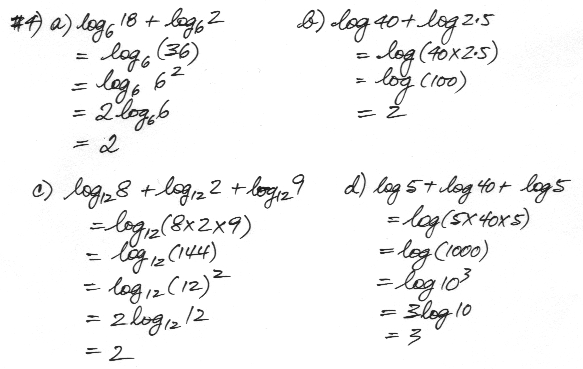 #4) a) log₆ 18 + log₆ 2
= log₆ (36)
= log₆ 6²
= 2 log₆ 6
= 2
b) log 40 + log 2.5
= log (40 × 2.5)
= log (100)
= 2
c) log₁₂ 8 + log₁₂ 2 + log₁₂ 9
= log₁₂ (8 × 2 × 9)
= log₁₂ (144)
= log₁₂ (12)²
= 2 log₁₂ 12
= 2
d) log 5 + log 40 + log 5
= log (5 × 40 × 5)
= log (1000)
= log 10³
= 3 log 10
= 3